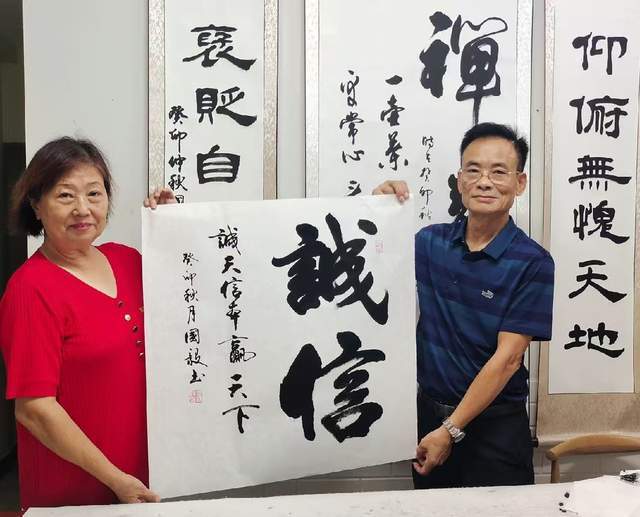 仰俯無愧天地
禪
一壶茶
常心
褒貶自
癸卯仲秋月
誠信
誠天信本贏天下
癸卯秋月國毅书